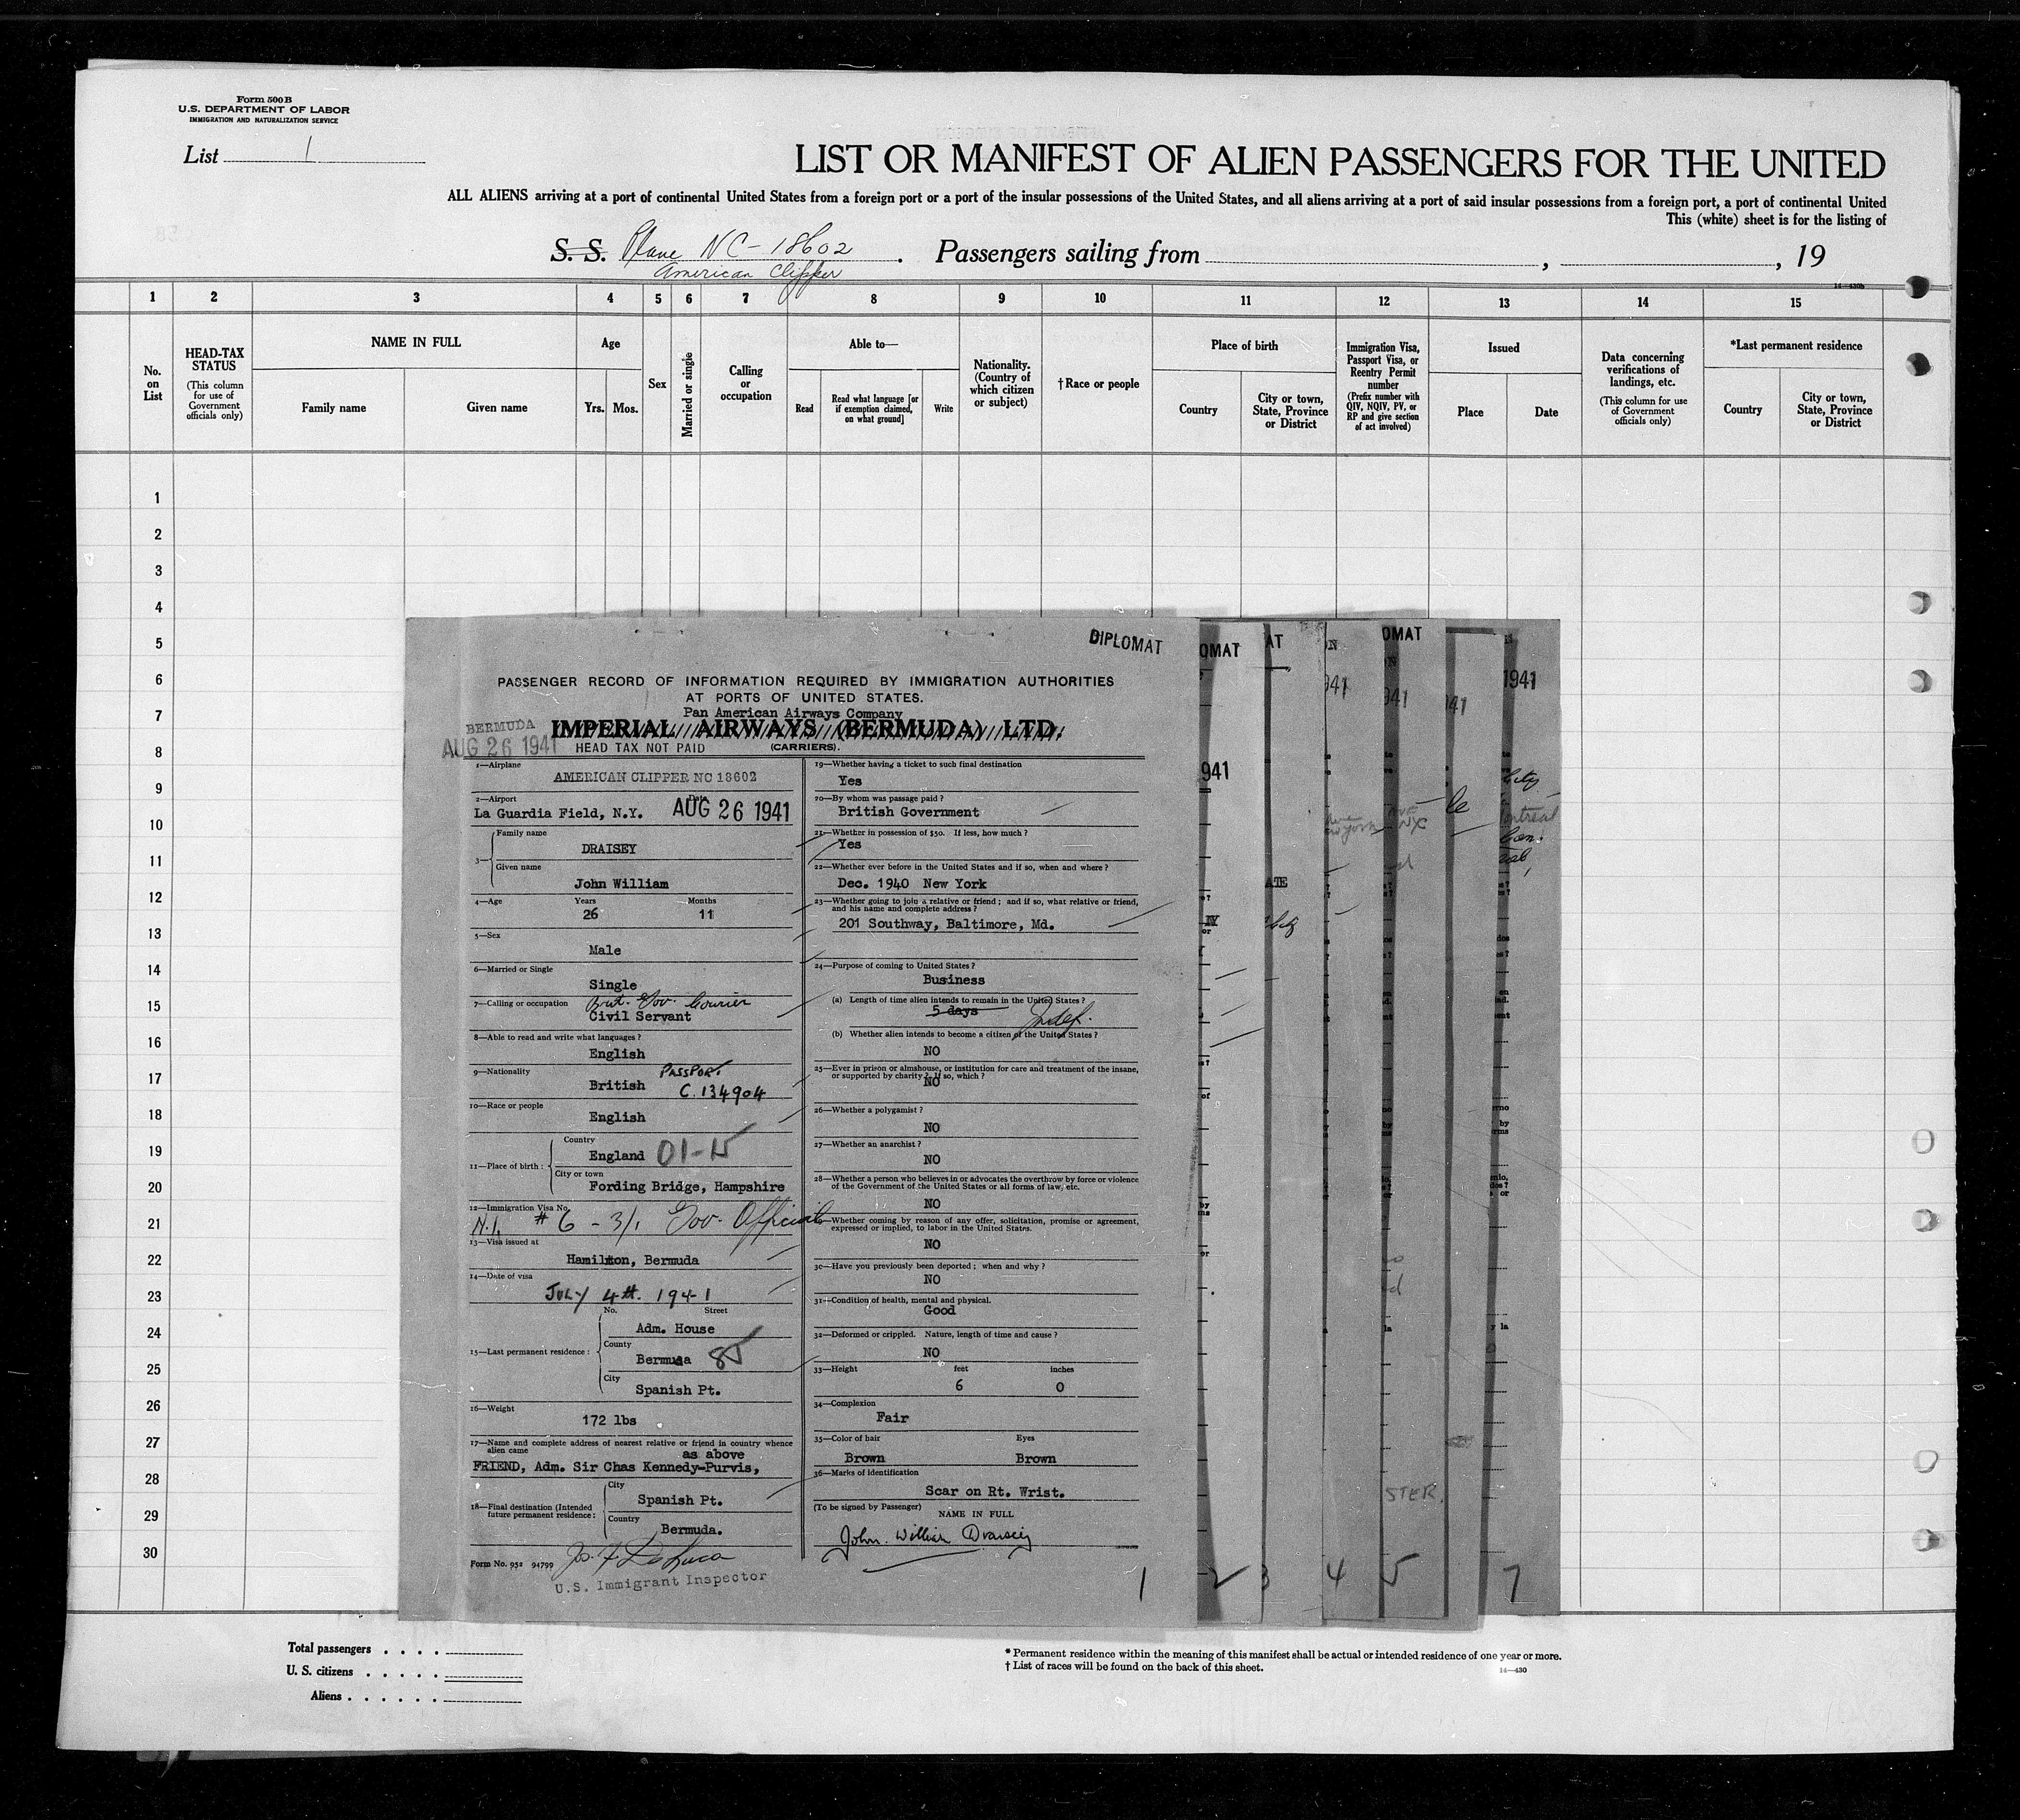 Form 500 B
U.S. DEPARTMENT OF LABOR
IMMIGRATION AND NATURALIZATION SERVICE
List 1
LIST OR MANIFEST OF ALIEN PASSENGERS FOR THE UNITED
ALL ALIENS arriving at a port of continental United States from a foreign port or a port of the insular possessions of the United States, and all aliens arriving at a port of said insular possessions from a foreign port, a port of continental United
This (white) sheet is for the listing of
S. S. Plane NC-18602 . Passengers sailing from , , 19
American Clipper
14—430b
1 2 3 4 5 6 7 8 9 10 11 12 13 14 15
No. on List
HEAD-TAX STATUS
(This column for use of Government officials only)
NAME IN FULL
Family name Given name
Age
Yrs. Mos.
Sex
Married or single
Calling or occupation
Able to—
Read
Read what language [or if exemption claimed, on what ground]
Write
Nationality. (Country of which citizen or subject)
† Race or people
Place of birth
Country
City or town, State, Province or District
Immigration Visa, Passport Visa, or Reentry Permit number
(Prefix number with QIV, NQIV, PV, or RP and give section of act involved)
Issued
Place Date
Data concerning verifications of landings, etc.
(This column for use of Government officials only)
*Last permanent residence
Country
City or town, State, Province or District
1
2
3
4
5
6
7
8
9
10
11
12
13
14
15
16
17
18
19
20
21
22
23
24
25
26
27
28
29
30
DIPLOMAT
PASSENGER RECORD OF INFORMATION REQUIRED BY IMMIGRATION AUTHORITIES
AT PORTS OF UNITED STATES.
Pan American Airways Company
IMPERIAL AIRWAYS (BERMUDA) LTD.
BERMUDA
AUG 26 1941
HEAD TAX NOT PAID (CARRIERS).
1—Airplane
AMERICAN CLIPPER NC 18602
2—Airport Date
La Guardia Field, N.Y. AUG 26 1941
3— Family name
DRAISEY
Given name
John William
4—Age Years Months
26 11
5—Sex
Male
6—Married or Single
Single
7—Calling or occupation Brit. Gov. Courier
Civil Servant
8—Able to read and write what languages?
English
9—Nationality PASSPORT
British C. 134904
10—Race or people
English
11—Place of birth: Country
England 01-15
City or town
Fording Bridge, Hampshire
12—Immigration Visa No.
N.I. #6 - 3/1 Gov. Official
13—Visa issued at
Hamilton, Bermuda
14—Date of visa
JULY 4th. 1941
No. Street
Adm. House
15—Last permanent residence: County
Bermuda 85
City
Spanish Pt.
16—Weight
172 lbs
17—Name and complete address of nearest relative or friend in country whence alien came
as above
FRIEND, Adm. Sir Chas Kennedy-Purvis,
18—Final destination (Intended future permanent residence: City
Spanish Pt.
Country
Bermuda.
Form No. 952 94799
Jos. F. DeLuca
U.S. Immigrant Inspector
19—Whether having a ticket to such final destination
Yes
20—By whom was passage paid?
British Government
21—Whether in possession of $50. If less, how much?
Yes
22—Whether ever before in the United States and if so, when and where?
Dec. 1940 New York
23—Whether going to join a relative or friend; and if so, what relative or friend, and his name and complete address?
201 Southway, Baltimore, Md.
24—Purpose of coming to United States?
Business
(a) Length of time alien intends to remain in the United States?
5 days Indef.
(b) Whether alien intends to become a citizen of the United States?
NO
25—Ever in prison or almshouse, or institution for care and treatment of the insane, or supported by charity? If so, which?
NO
26—Whether a polygamist?
NO
27—Whether an anarchist?
NO
28—Whether a person who believes in or advocates the overthrow by force or violence of the Government of the United States or all forms of law, etc.
NO
—Whether coming by reason of any offer, solicitation, promise or agreement, expressed or implied, to labor in the United States.
NO
30—Have you previously been deported; when and why?
NO
31—Condition of health, mental and physical.
Good
32—Deformed or crippled. Nature, length of time and cause?
NO
33—Height feet inches
6 0
34—Complexion
Fair
35—Color of hair Eyes
Brown Brown
36—Marks of identification
Scar on Rt. Wrist.
(To be signed by Passenger)
NAME IN FULL
John William Draisey
1 2 3 4 5 7
OMAT
AT
OMAT
941
941
941
941
1941
STER.
Total passengers . . . .
U. S. citizens . . . . .
Aliens . . . . . .
* Permanent residence within the meaning of this manifest shall be actual or intended residence of one year or more.
† List of races will be found on the back of this sheet.
14—430